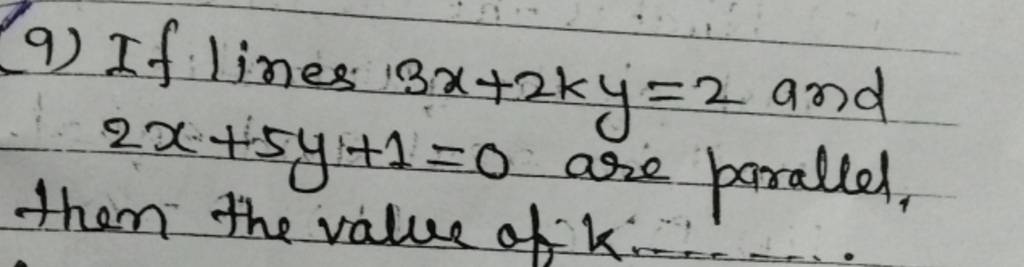 (9) If lines 3x+2ky=2 and
2x+5y+1=0 are parallel,
then the value of k.........